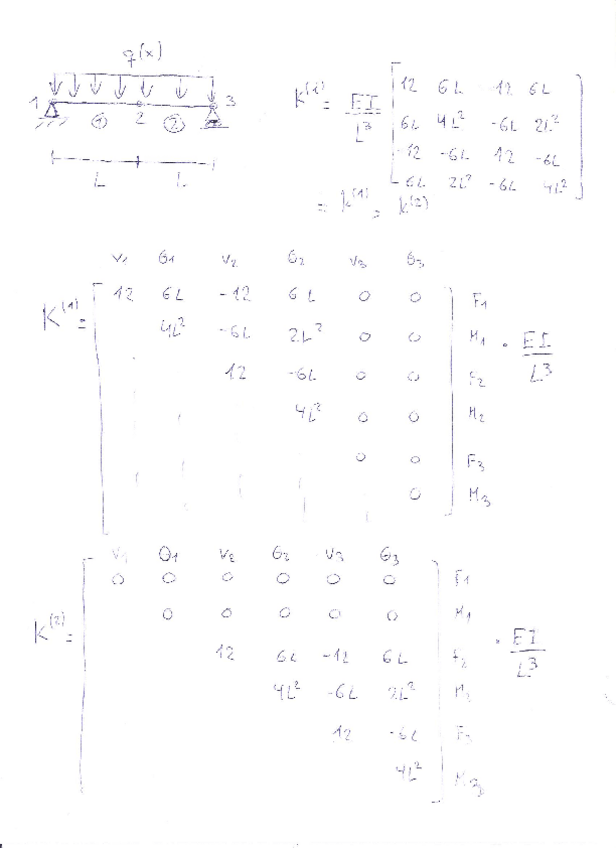 q(x)
1 ① 2 ② 3
L L
K⁽¹⁾ = EI/L³
12 6L -12 6L
6L 4L² -6L 2L²
-12 -6L 12 -6L
6L 2L² -6L 4L²
= k⁽¹⁾ = k⁽²⁾
v₁ θ₁ v₂ θ₂ v₃ θ₃
K⁽¹⁾ =
12 6L -12 6L 0 0 F₁
4L² -6L 2L² 0 0 M₁ · EI/L³
12 -6L 0 0 F₂
4L² 0 0 M₂
0 0 F₃
0 M₃
v₁ θ₁ v₂ θ₂ v₃ θ₃
0 0 0 0 0 0 F₁
K⁽²⁾ =
0 0 0 0 0 M₁
12 6L -12 6L F₂ · EI/L³
4L² -6L 2L² M₂
12 -6L F₃
4L² M₃